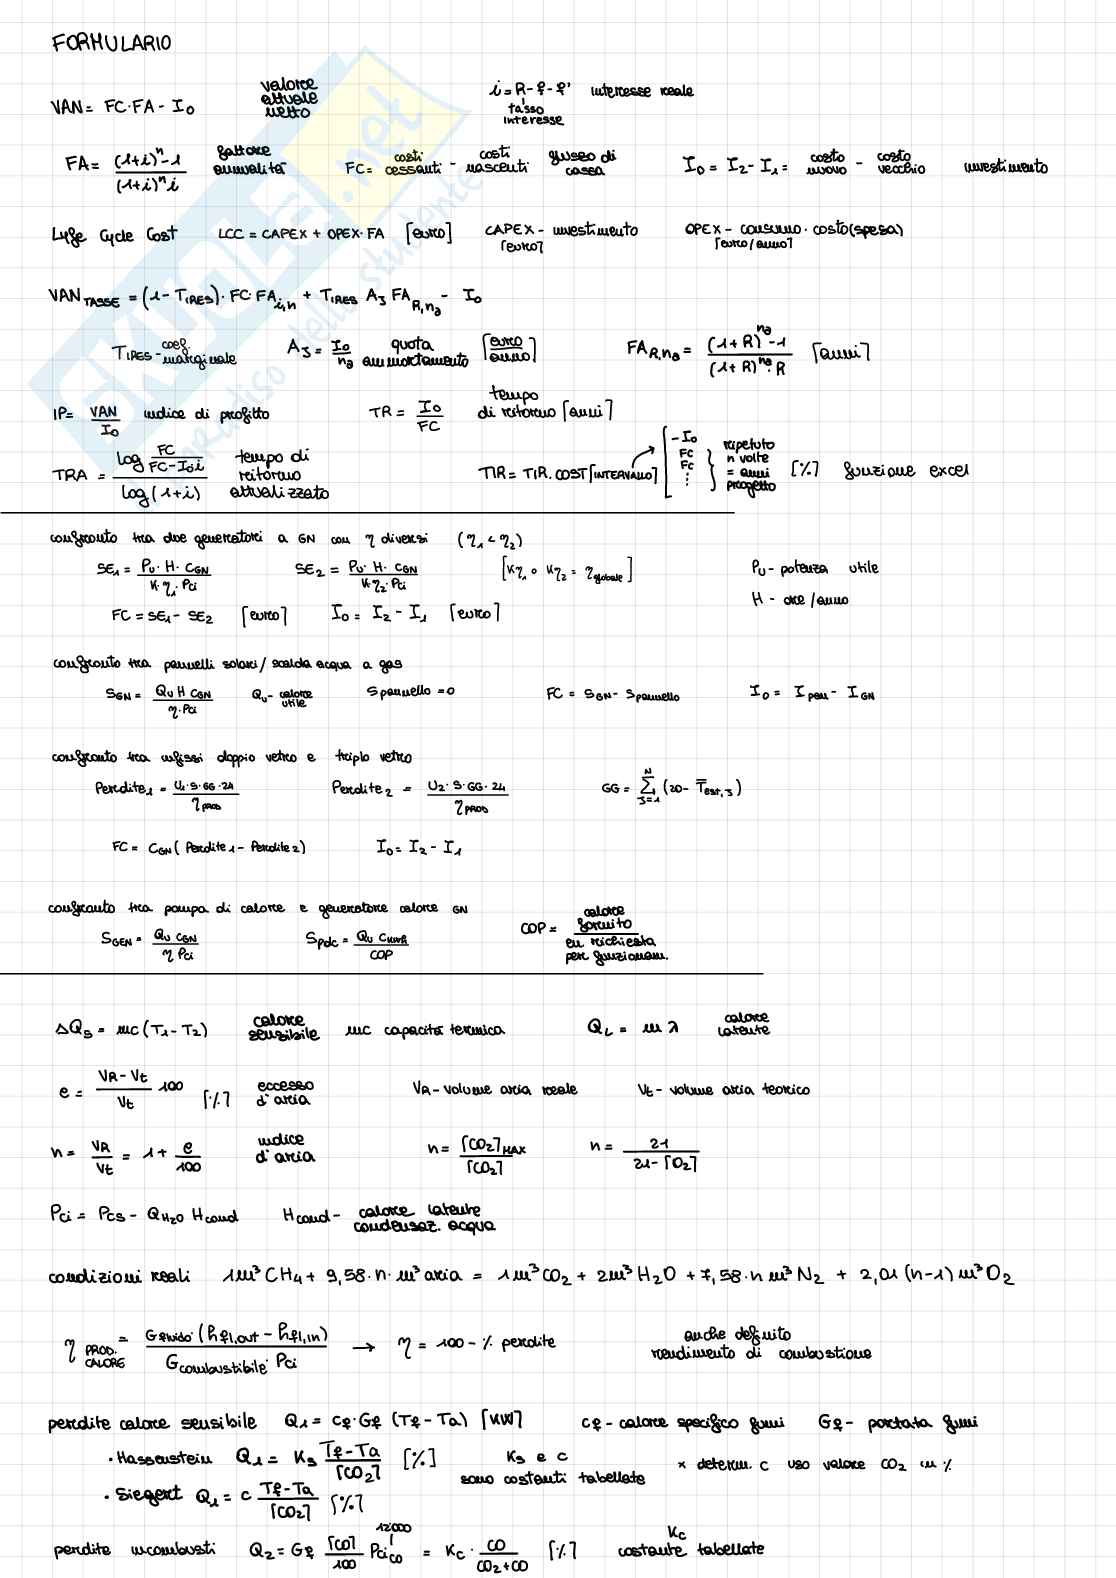 FORMULARIO
VAN = FC·FA - I₀ valore attuale netto i = R - f - f' interesse reale
tasso interesse
FA = ((1+i)ⁿ - 1) / ((1+i)ⁿ i) fattore annualità FC = costi cessanti - costi nascenti flusso di cassa I₀ = I₂ - I₁ = costo nuovo - costo vecchio investimento
Life Cycle Cost LCC = CAPEX + OPEX·FA [euro] CAPEX - investimento [euro] OPEX - consumo · costo (spesa) [euro/anno]
VAN TASSE = (1 - TIRES)·FC·FA i,n + TIRES AJ FA R,na - I₀
TIRES - coef. marginale AJ = I₀/na quota ammortamento [euro/anno] FA R,na = ((1+R)^na - 1) / ((1+R)^na·R) [anni]
IP = VAN/I₀ indice di profitto TR = I₀/FC tempo di ritorno [anni]
TRA = log(FC/(FC - I₀i)) / log(1+i) tempo di ritorno attualizzato TIR = TIR.COST [INTERVALLO] [-I₀ FC FC ⋮ } ripetuto n volte = anni progetto [%] funzione excel
confronto tra due generatori a GN con η diversi (η₁ < η₂)
SE₁ = (PU·H·CGN) / (K·η₁·Pci) SE₂ = (PU·H·CGN) / (K·η₂·Pci) [Kη₁ o Kη₂ = ηglobale] PU - potenza utile
H - ore/anno
FC = SE₁ - SE₂ [euro] I₀ = I₂ - I₁ [euro]
confronto tra pannelli solari/scalda acqua a gas
SGN = (QU H CGN) / (η·Pci) QU - calore utile Spannello = 0 FC = SGN - Spannello I₀ = Ipan - IGN
confronto tra infissi doppio vetro e triplo vetro
Perdite₁ = (U₁·S·GG·24) / ηPROD Perdite₂ = (U₂·S·GG·24) / ηPROD GG = Σ(J=1, N) (20 - T̅est,J)
FC = CGN (Perdite₁ - Perdite₂) I₀ = I₂ - I₁
confronto tra pompa di calore e generatore calore GN
SGEN = (QU CGN) / (η Pci) Spdc = (QU CKWh) / COP COP = calore fornito / en richiesta per funzionam.
ΔQs = mc (T₁ - T₂) calore sensibile mc capacità termica QL = m λ calore latente
e = (VR - Vt)/Vt 100 [%] eccesso d'aria VR - volume aria reale Vt - volume aria teorico
n = VR/Vt = 1 + e/100 indice d'aria n = [CO₂]MAX / [CO₂] n = 21 / (21 - [O₂])
Pci = Pcs - QH₂O Hcond Hcond - calore latente condensaz. acqua
condizioni reali 1m³ CH₄ + 9,58·n·m³ aria = 1m³ CO₂ + 2m³ H₂O + 7,58·n m³ N₂ + 2,01 (n-1) m³ O₂
η PROD. CALORE = Gfluido·(hfl,out - hfl,in) / (Gcombustibile·Pci) → η = 100 - % perdite anche definito rendimento di combustione
perdite calore sensibile Q₁ = cf·Gf (Tf - Ta) [KW] cf - calore specifico fumi Gf - portata fumi
· Hassenstein Q₁ = Ks (Tf - Ta)/[CO₂] [%] Ks e c sono costanti tabellate * determ. c uso valore CO₂ in %
· Siegert Q₁ = c (Tf - Ta)/[CO₂] [%]
perdite incombusti Q₂ = Gf [CO]/100 Pci CO 12'000 = Kc · CO/(CO₂+CO) [%] Kc costante tabellate